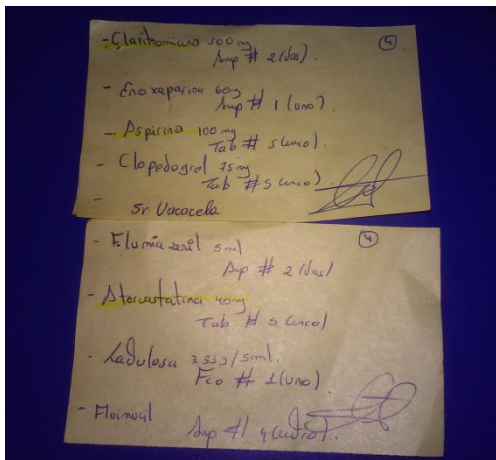 ④
- Claritromicina 500mg
Amp # 2 (dos).
- Enoxaparina 60mg
Amp # 1 (uno)
- Aspirina 100mg
Tab # 5 (cinco)
- Clopedogrel 75mg
Tab # 5 (cinco).
-
Sr Vacacela
④
- Flumazenil 5ml
Amp # 2 (dos)
- Atorvastatina 40mg
Tab # 5 (cinco)
- Lactulosa 3.33g/5ml.
Fco # 1 (uno)
- Fluimucil
Amp # 4 (cuatro).